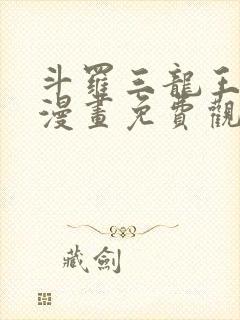 斗羅三龍王
漫畫免費觀
藏劍